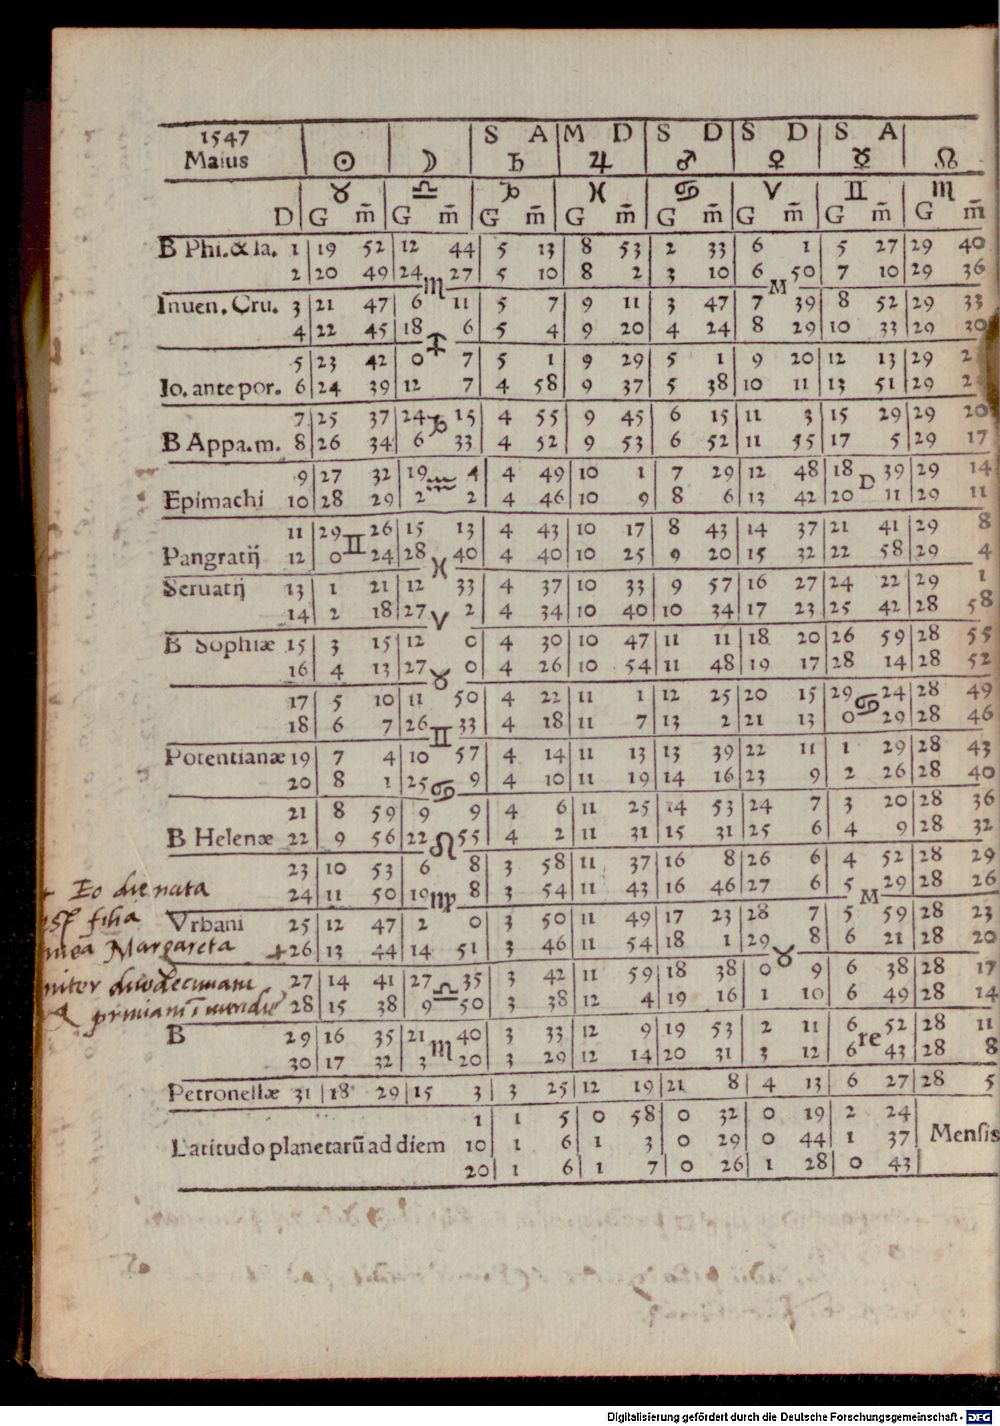 S A M D S D S D S A
1547 Maius ☉ ☽ ♄ ♃ ♂ ♀ ☿ ☊
♉ ♎ ♑ ♓ ♋ ♈ ♊ ♏
D G m̄ G m̄ G m̄ G m̄ G m̄ G m̄ G m̄ G m̄
B Phi. & Ia. 1 19 52 12 44 5 13 8 53 2 33 6 1 5 27 29 40
2 20 49 24 ♏ 27 5 10 8 2 3 10 6 M 50 7 10 29 36
Inuen. Cru. 3 21 47 6 11 5 7 9 11 3 47 7 39 8 52 29 33
4 22 45 18 ♐ 6 5 4 9 20 4 24 8 29 10 33 29 30
5 23 42 0 7 5 1 9 29 5 1 9 20 12 13 29 2
Io. ante por. 6 24 39 12 7 4 58 9 37 5 38 10 11 13 51 29 2
7 25 37 24 ♑ 15 4 55 9 45 6 15 11 3 15 29 29 20
B Appa. m. 8 26 34 6 33 4 52 9 53 6 52 11 55 17 5 29 17
9 27 32 19 ♒ 4 4 49 10 1 7 29 12 48 18 D 39 29 14
Epimachi 10 28 29 2 2 4 46 10 9 8 6 13 42 20 11 29 11
11 29 ♊ 26 15 13 4 43 10 17 8 43 14 37 21 41 29 8
Pangratij 12 0 24 28 ♓ 40 4 40 10 25 9 20 15 32 22 58 29 4
Seruatij 13 1 21 12 33 4 37 10 33 9 57 16 27 24 22 29 1
14 2 18 27 ♈ 2 4 34 10 40 10 34 17 23 25 42 28 58
B Sophiæ 15 3 15 12 0 4 30 10 47 11 11 18 20 26 59 28 55
16 4 13 27 ♉ 0 4 26 10 54 11 48 19 17 28 14 28 52
17 5 10 11 50 4 22 11 1 12 25 20 15 29 ♋ 24 28 49
18 6 7 26 ♊ 33 4 18 11 7 13 2 21 13 0 29 28 46
Potentianæ 19 7 4 10 57 4 14 11 13 13 39 22 11 1 29 28 43
20 8 1 25 ♋ 9 4 10 11 19 14 16 23 9 2 26 28 40
21 8 59 9 9 4 6 11 25 14 53 24 7 3 20 28 36
B Helenæ 22 9 56 22 ♌ 55 4 2 11 31 15 31 25 6 4 9 28 32
23 10 53 6 8 3 58 11 37 16 8 26 6 4 52 28 29
+ Eo die nata
24 11 50 19 ♍ 8 3 54 11 43 16 46 27 6 5 M 29 28 26
est filia
Vrbani 25 12 47 2 0 3 50 11 49 17 23 28 7 5 59 28 23
mea Margareta
+ 26 13 44 14 51 3 46 11 54 18 1 29 ♉ 8 6 21 28 20
27 14 41 27 ♎ 35 3 42 11 59 18 38 0 9 6 38 28 17
28 15 38 9 50 3 38 12 4 19 16 1 10 6 49 28 14
B 29 16 35 21 ♏ 40 3 33 12 9 19 53 2 11 6 re 52 28 11
30 17 32 3 20 3 29 12 14 20 31 3 12 6 43 28 8
Petronellæ 31 18 29 15 3 3 25 12 19 21 8 4 13 6 27 28 5
1 1 5 0 58 0 32 0 19 2 24
Latitudo planetarū ad diem 10 1 6 1 3 0 29 0 44 1 37 Mensis
20 1 6 1 7 0 26 1 28 0 43
Digitalisierung gefördert durch die Deutsche Forschungsgemeinschaft - DFG